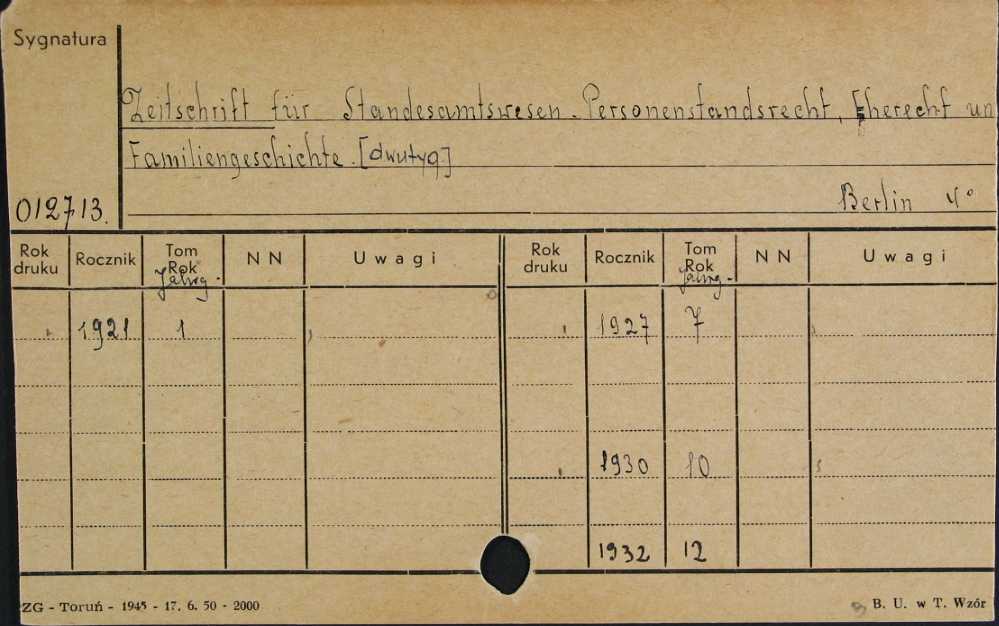 Sygnatura
Zeitschrift für Standesamtswesen. Personenstandsrecht, Eherecht un
Familiengeschichte. [dwutyg.]
012713.
Berlin 4°
Rok druku Rocznik Tom Rok Jahrg. NN Uwagi Rok druku Rocznik Tom Rok Jahrg. NN Uwagi
1921 1 1927 7
1930 10
1932 12
ZG - Toruń - 1945 - 17. 6. 50 - 2000 B. U. w T. Wzór